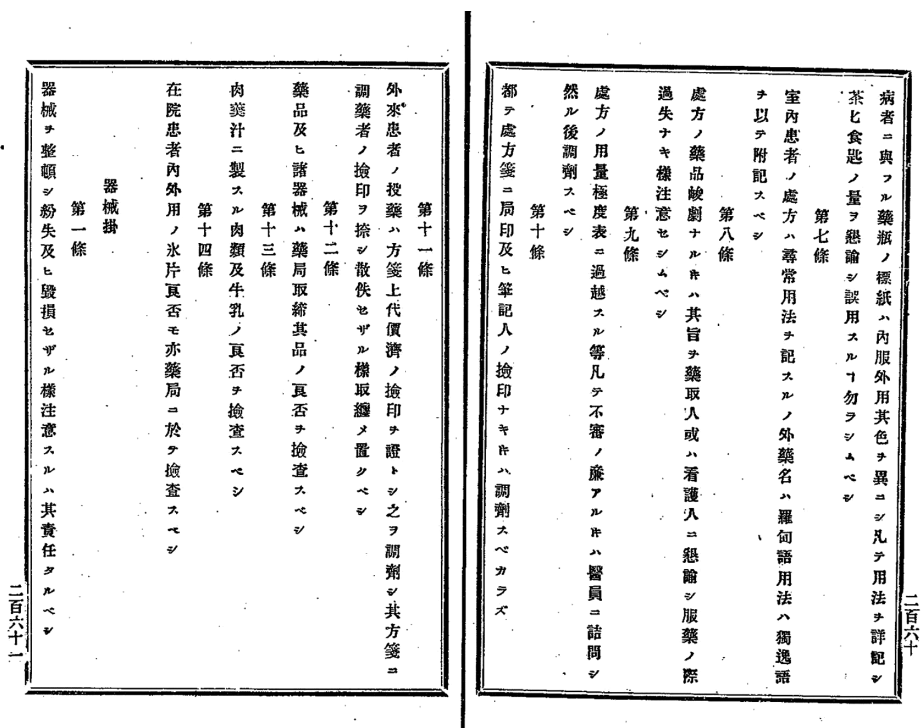 病者ニ與フル藥瓶ノ標紙ハ內服外用其色ヲ異ニシ凡テ用法ヲ詳記シ
茶匕食匙ノ量ヲ懇諭シ誤用スルヿ勿ラシムベシ
第七條
室內患者ノ處方ハ尋常用法ヲ記スルノ外藥名ハ羅甸語用法ハ獨逸語
ヲ以テ附記スベシ
第八條
處方ノ藥品峻劇ナルキハ其旨ヲ藥取人或ハ看護人ニ懇諭シ服藥ノ際
過失ナキ樣注意セシムベシ
第九條
處方ノ用量極度表ニ過越スル等凡テ不審ノ廉アルㇳキハ醫員ニ詰問シ
然ル後調劑スベシ
第十條
都テ處方箋ニ局印及ヒ筆記人ノ撿印ナキㇳキハ調劑スベカラズ
二百六十
第十一條
外來患者ノ投藥ハ方箋上代價濟ノ撿印ヲ證トシ之ヲ調劑シ其方箋ニ
調藥者ノ撿印ヲ捺シ散佚セザル樣取纏メ置クベシ
第十二條
藥品及ヒ諸器械ハ藥局取締其品ノ良否ヲ撿查スベシ
第十三條
肉羹汁ニ製スル肉類及牛乳ノ良否ヲ撿查スベシ
第十四條
在院患者內外用ノ氷片良否モ亦藥局ニ於テ撿查スベシ
器械掛
第一條
器械ヲ整頓シ紛失及ヒ毀損セザル樣注意スルハ其責任タルベシ
二百六十一